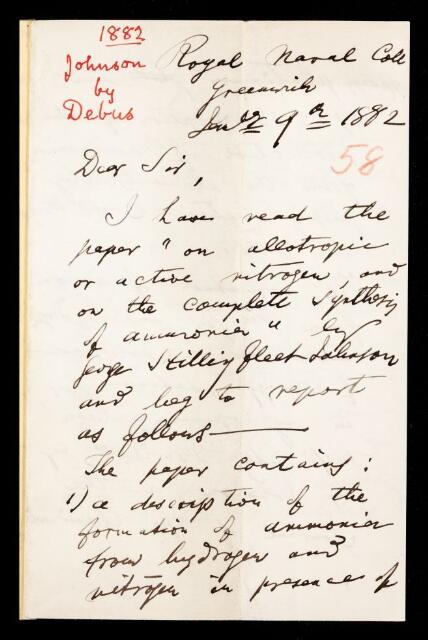 1882
Johnson
by
Debus
Royal Naval Coll
Greenwich
9th 1882
58
Dear Sir,
I have read the
paper "on allotropic
or active nitrogen, and
on the complete Synthesis
of ammonia" by
George Stillingfleet Johnson
and beg to report
as follows —
The paper contains:
1) a description of the
formation of ammonia
from hydrogen and
nitrogen in presence of